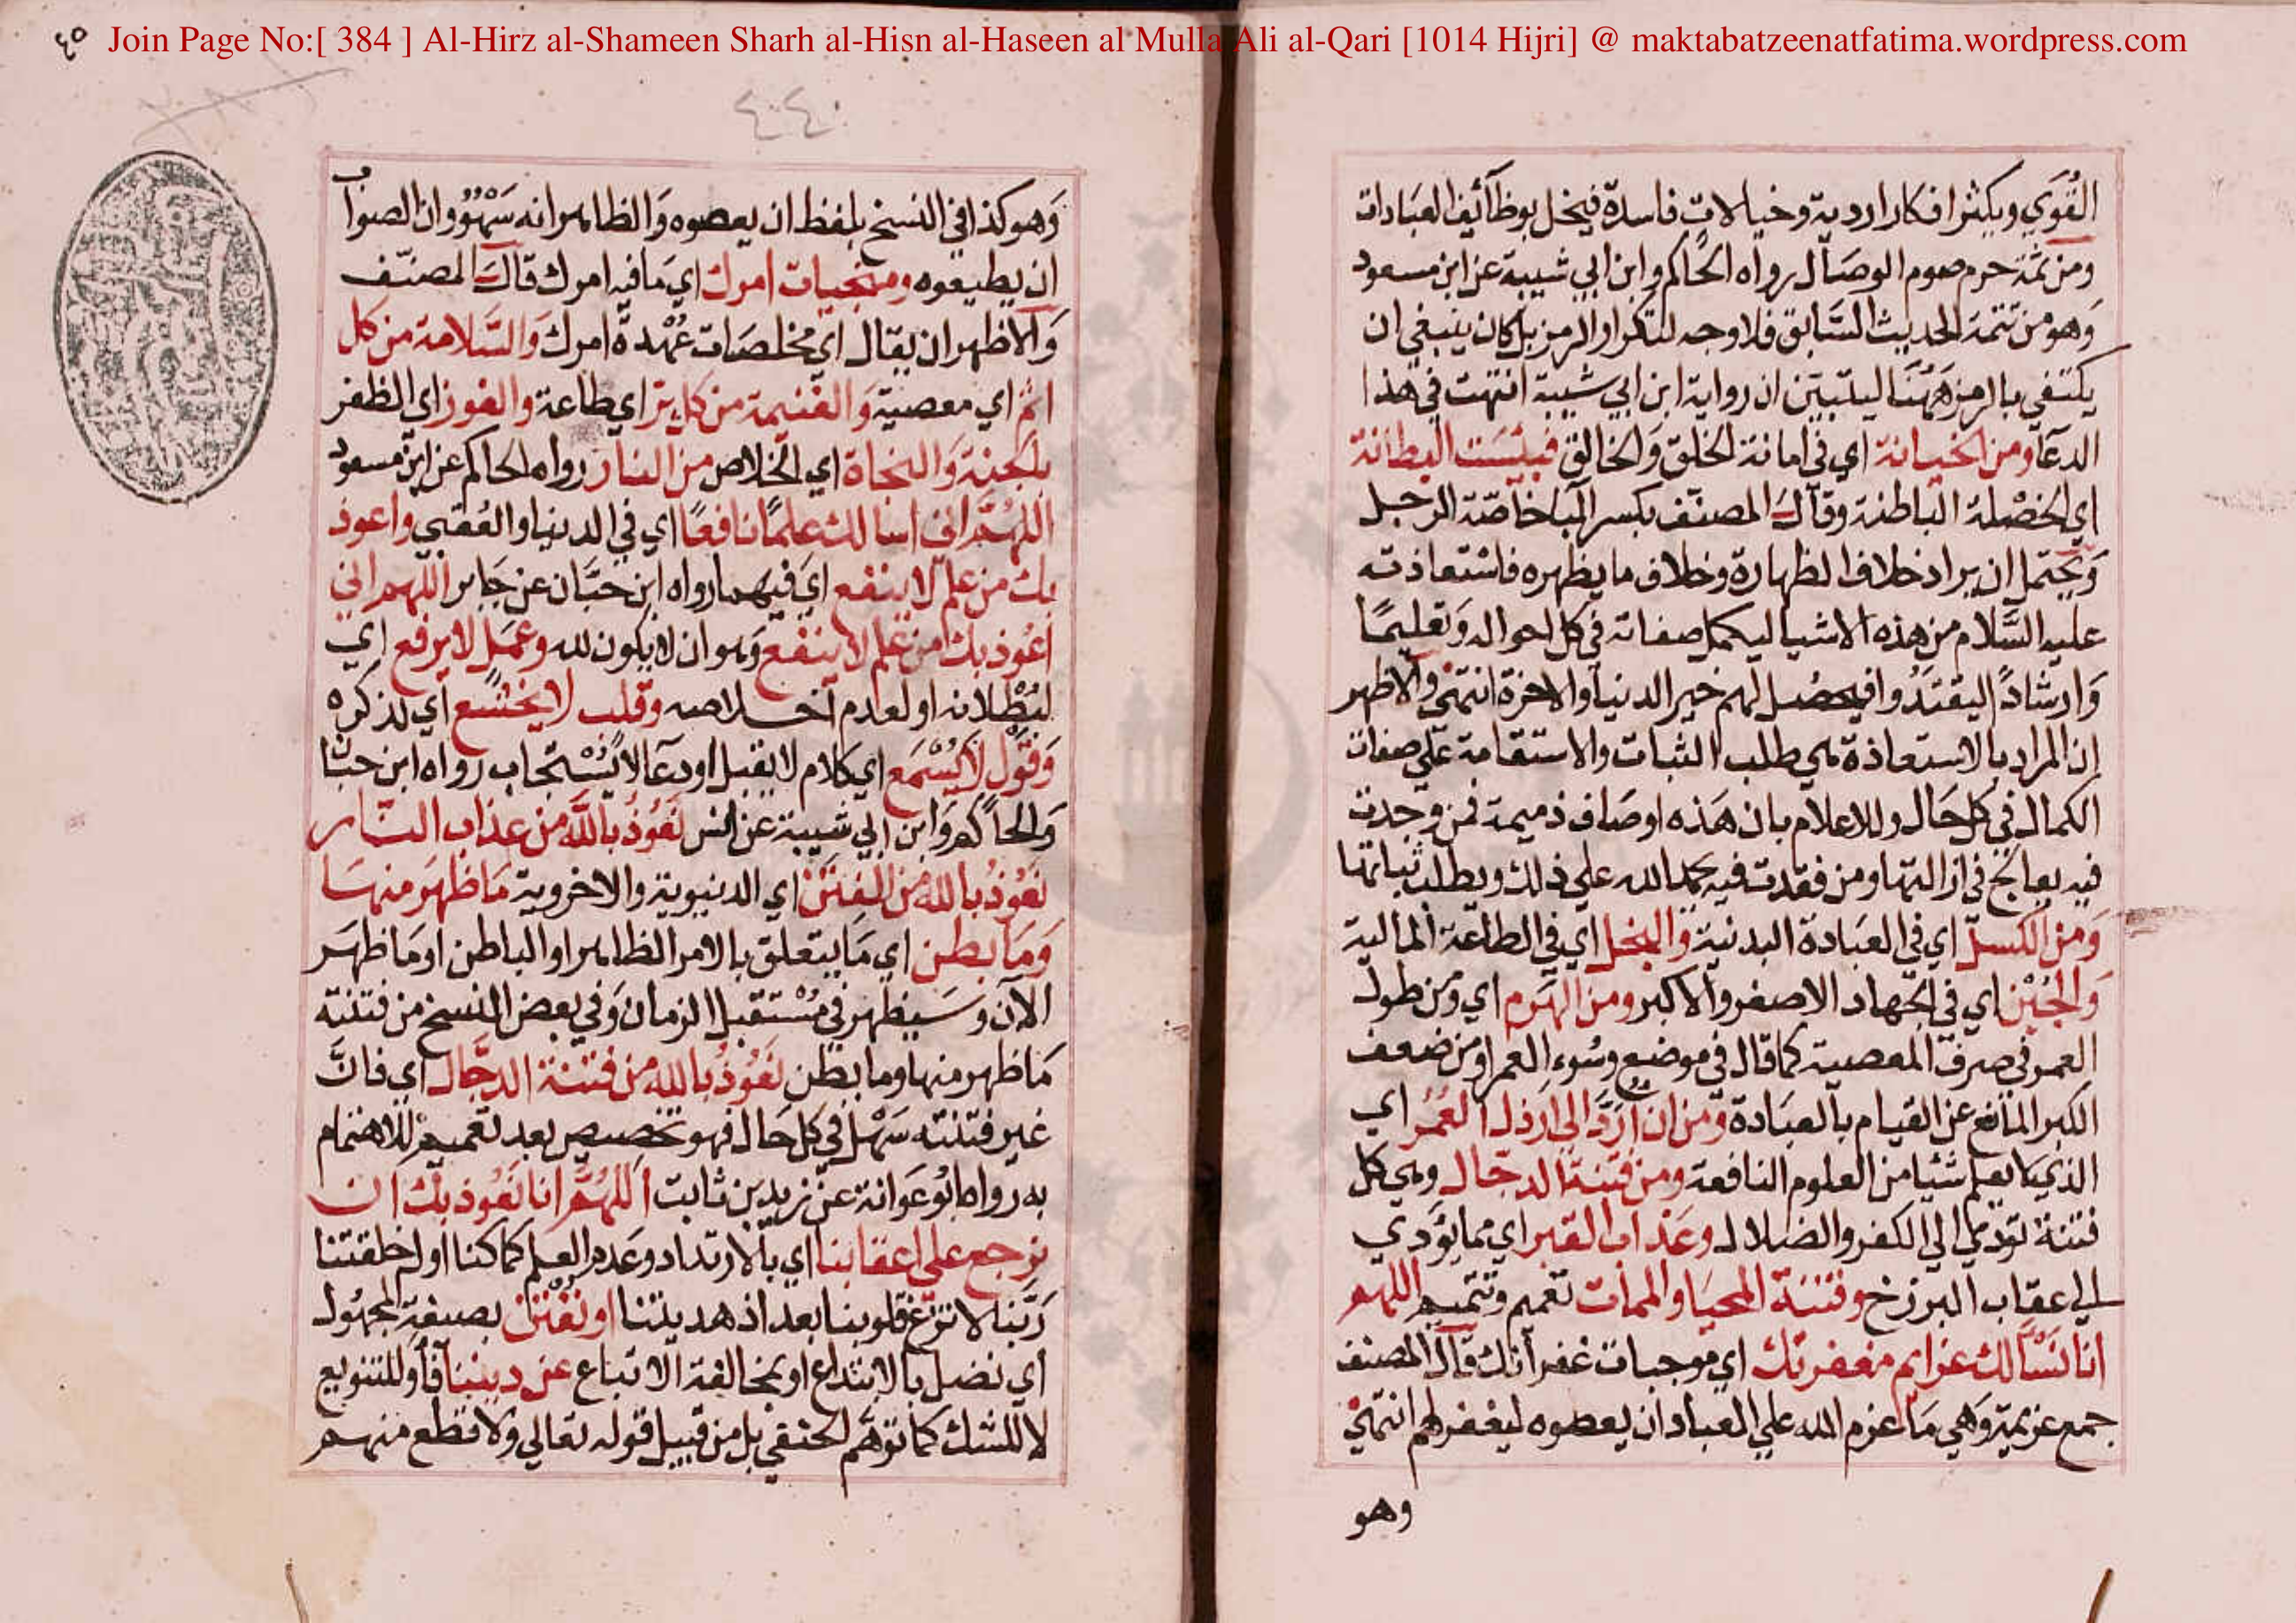 Join Page No:[ 384 ] Al-Hirz al-Shameen Sharh al-Hisn al-Haseen al Mulla Ali al-Qari [1014 Hijri] @ maktabatzeenatfatima.wordpress.com
القوي ويكثر افكارا ردية وخيالات فاسدة فيخل بوظائف العبادات
ومن ثمة حرم صوم الوصال رواه الحاكم وابن ابي شيبة عن ابن مسعود
وهو من تتمة الحديث السابق فلا وجه لتكرار الرمز بل كان ينبغي ان
يكتفي بالرمز ههنا ليتبين ان رواية ابن ابي شيبة انتهت في هذا
الدعا ومن الخيانة اي في امانة الخلق والخالق فبئست البطانة
اي الخصلة الباطنة وقال المصنف بكسر البا خاصة الرجل
ويحتمل ان يراد خلاف الظهارة وخلاف ما يظهره فاستعاذته
عليه السلام من هذه الاشيا ليكمل صفاته في كل احواله وتعليما
وارشادا ليقتدوا فيحصل لهم خير الدنيا والاخرة انتهى والاظهر
ان المراد بالاستعاذة هي طلب الثبات والاستقامة علي صفات
الكمال في كل حال وللاعلام بان هذه اوصاف ذميمة فمن وجدت
فيه يعالج في ازالتها ومن فقدت فيه حمد الله علي ذلك ويطلب ثباتها
ومن الكسل اي في العبادة البدنية والبخل اي في الطاعة المالية
والجبن اي في الجهاد الاصغر والاكبر ومن الهرم اي ومن طول
العمر في صرف المعصية كما قال في موضع وسوء العمر او من ضعف
الكبر المانع عن القيام بالعبادة ومن ان ارد الى ارذل العمر اي
الذي لا يعلم شئيا من العلوم النافعة ومن فتنة الدجال وهي كل
فتنة تؤدي الي الكفر والضلال وعذاب القبر اي مما يؤدي
الي عقاب البرزخ وفتنة المحيا والممات تعميم وتتميم اللهم
انا نسالك عزايم مغفرتك اي موجبات غفرانك قال المصنف
جمع عزيمة وهي ما عزم الله علي العباد ان يعصوه ليغفر لهم انتهي
وهو
٤٤٠
وهو كذا في النسخ بلفظ ان يعصوه والظاهر انه سهو وان الصواب
ان يطيعوه ومنجيات امرك اي ما فيه امرك قال المصنف
والاظهر ان يقال اي مخلصات عهدة امرك والسلامة من كل
اثم اي معصية والغنيمة من كل بر اي طاعة والفوز اي الظفر
بالجنة والنجاة اي الخلاص من النار رواه الحاكم عن ابن مسعود
اللهم اني اسالك علما نافعا اي في الدنيا والعقبي واعوذ
بك من علم لا ينفع اي فيهما رواه ابن حبان عن جابر اللهم اني
اعوذ بك من علم لا ينفع وهو ان لا يكون لله وعمل لا يرفع اي
لبطلانه او لعدم اخلاصه وقلب لا يخشع اي لذكره
وقول لا يسمع اي كلام لا يقبل او دعا لا يستجاب رواه ابن حبان
والحاكم وابن ابي شيبة عن انس نعوذ بالله من عذاب النار
نعوذ بالله من الفتن اي الدنيوية والاخروية ما ظهر منها
وما بطن اي ما يتعلق بالامر الظاهر او الباطن او ما ظهر
الآن وسيظهر في مستقبل الزمان وفي بعض النسخ من فتنة
ما ظهر منها وما بطن نعوذ بالله من فتنة الدجال اي فان
غير فتنته سهل في كل حال فهو تخصيص بعد تعميم للاهتمام
به رواه ابو عوانة عن زيد بن ثابت اللهم انا نعوذ بك ان
نرجع علي اعقابنا اي بالارتداد وعدم العلم كما كنا اول خلقتنا
ربنا لا تزغ قلوبنا بعد اذ هديتنا او نفتن بصيغة المجهول
اي نضل بالابتداع او بمخالفة الاتباع عن ديننا فاو للتنويع
لا للشك كما توهم لحنفي بل من قبيل قوله تعالي ولا تطع منهم